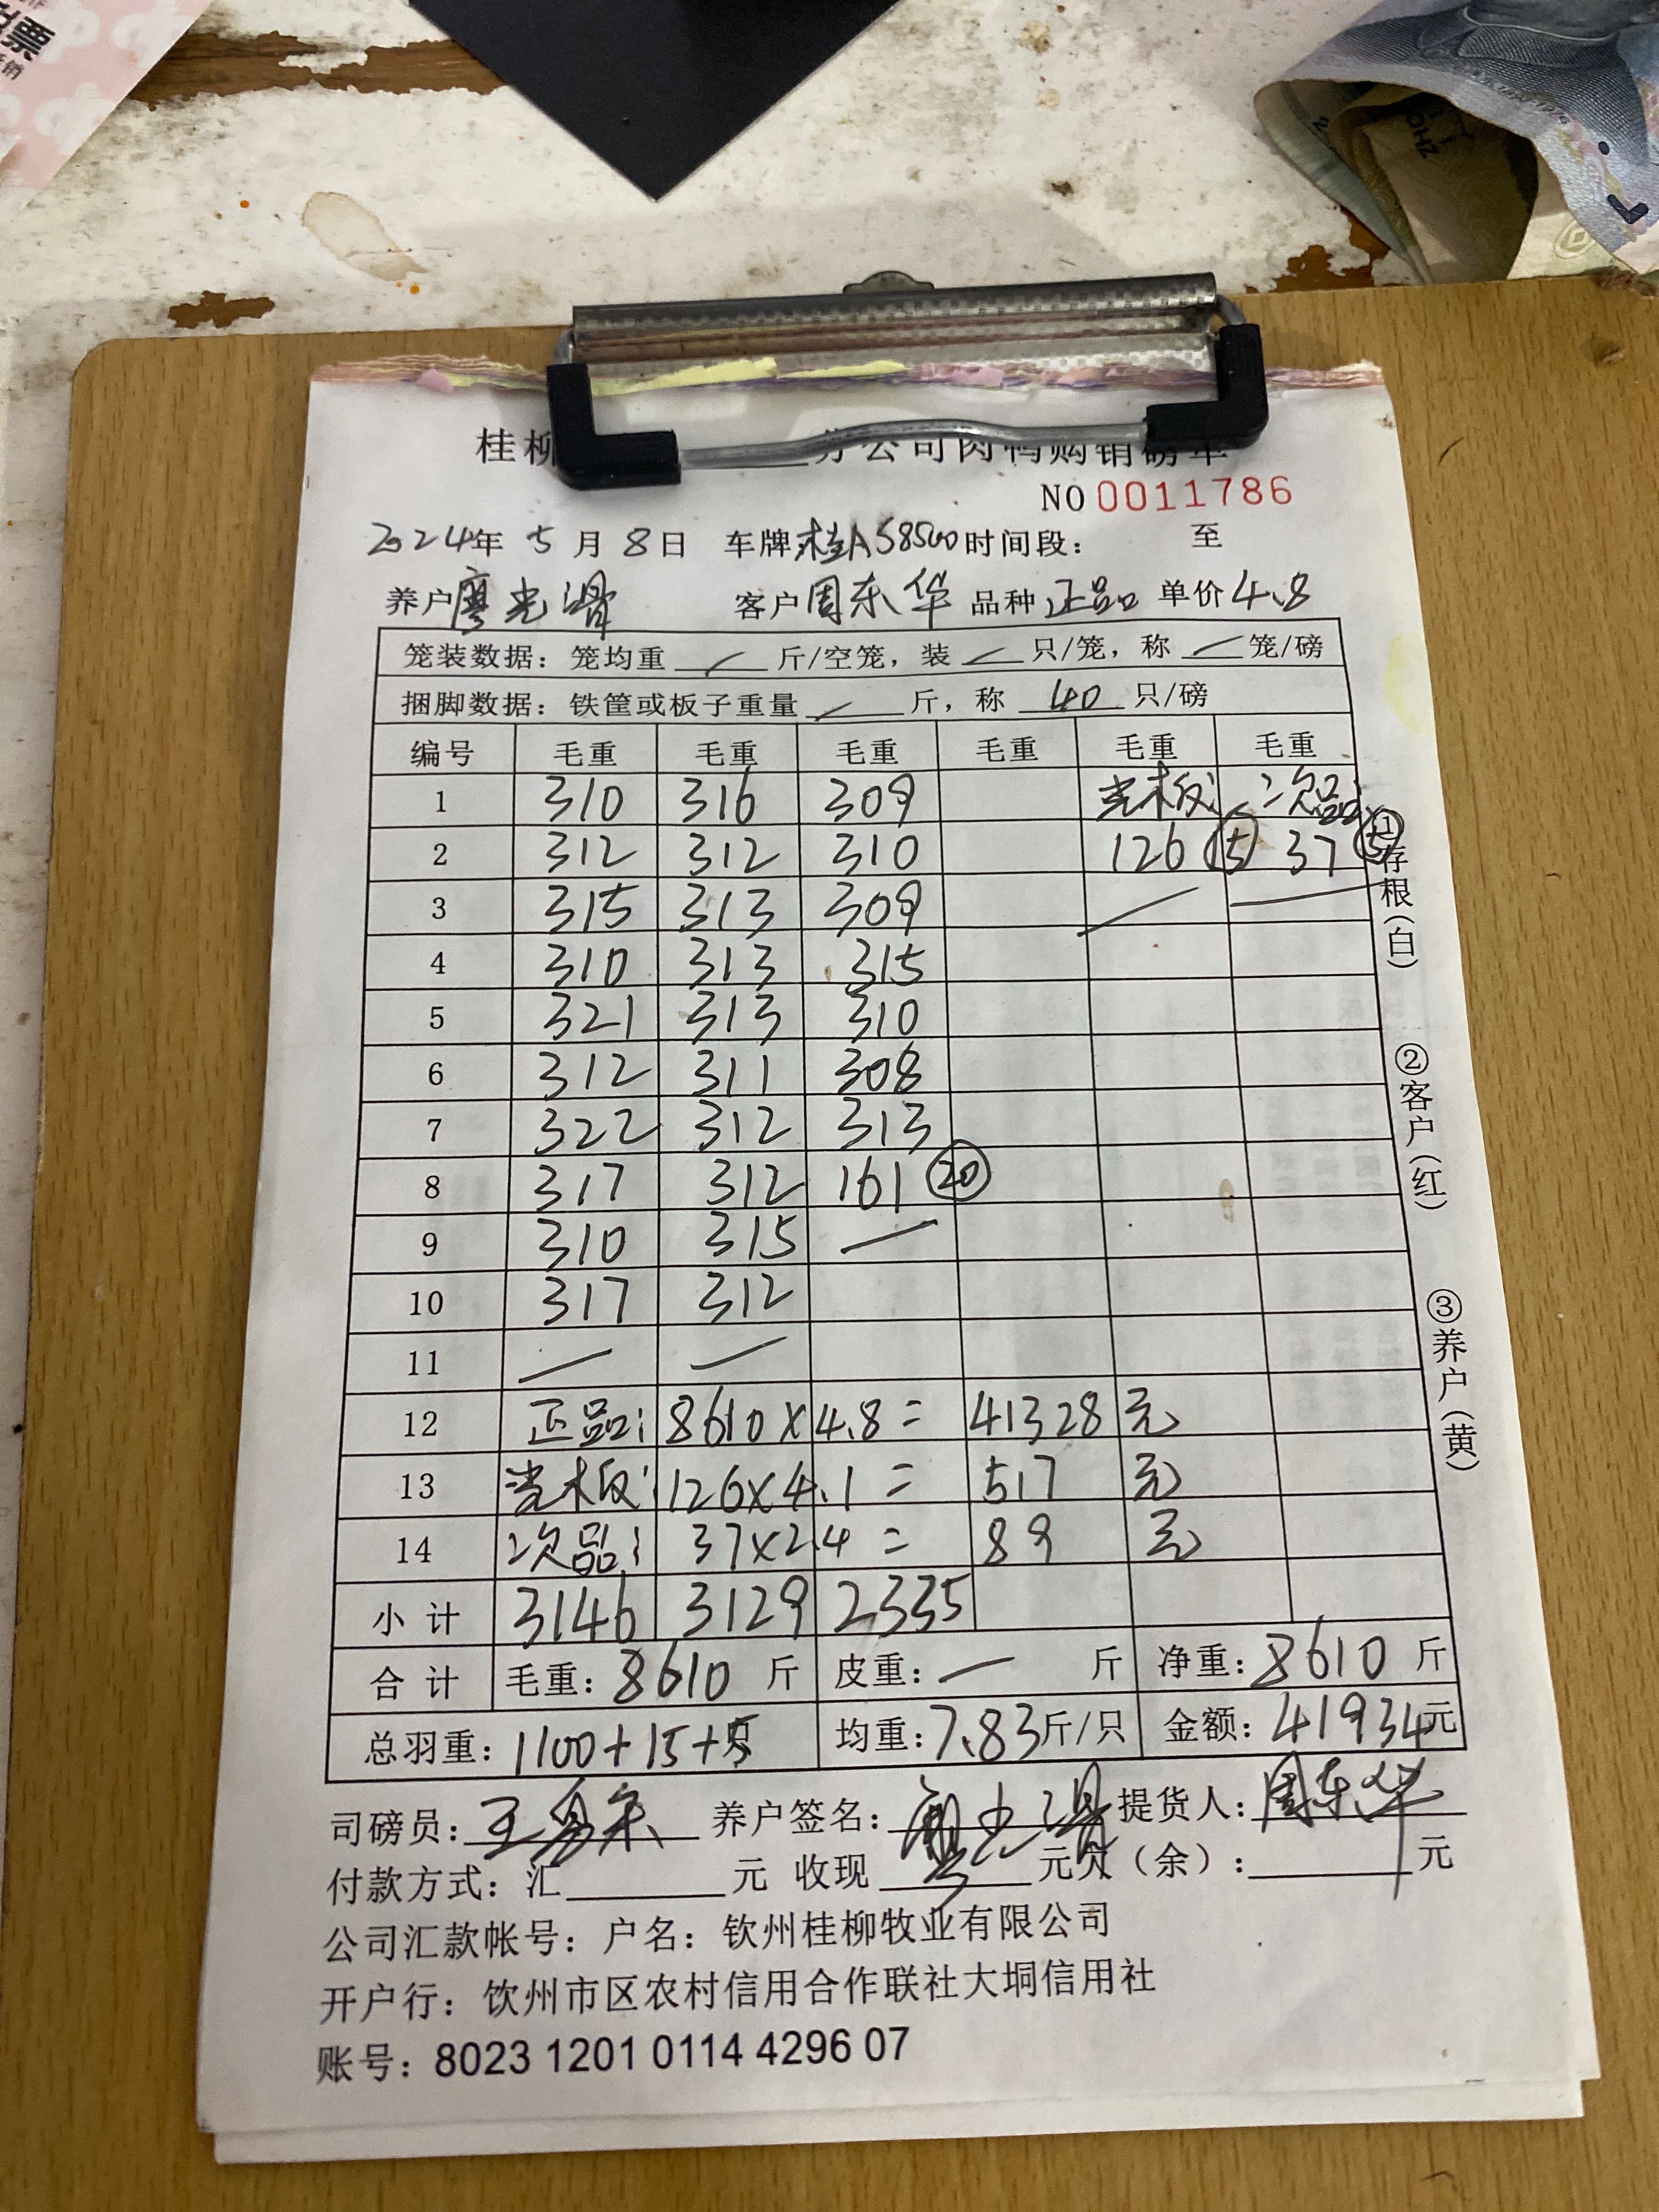 票
销
桂柳 分公司肉鸭购销磅单
NO 0011786
2024年 5 月 8 日 车牌桂A58500时间段: 至
养户廖光滑 客户周东华 品种 正品 单价4.8
笼装数据: 笼均重 / 斤/空笼, 装 / 只/笼, 称 / 笼/磅
捆脚数据: 铁筐或板子重量 / 斤, 称 40 只/磅
编号 毛重 毛重 毛重 毛重 毛重 毛重
1 310 316 309 光板: 次品:
2 312 312 310 126 (15) 37 (5)
3 315 313 309 / —
4 310 313 315
5 321 313 310
6 312 311 308
7 322 312 313
8 317 312 161 (20)
9 310 315 /
10 317 312
11 / /
12 正品: 8610×4.8= 41328 元
13 光板: 126×4.1 = 517 元
14 次品: 37×2.4 = 89 元
小 计 3146 3129 2335
合 计 毛重: 8610 斤 皮重: — 斤 净重: 8610 斤
总羽重: 1100+15+5 均重: 7.83斤/只 金额: 41934元
①存根(白) ②客户(红) ③养户(黄)
司磅员: 养户签名: 廖光滑 提货人: 周东华
付款方式: 汇 元 收现 元欠(余): 元
公司汇款帐号: 户名: 钦州桂柳牧业有限公司
开户行: 钦州市区农村信用合作联社大垌信用社
账号: 8023 1201 0114 4296 07